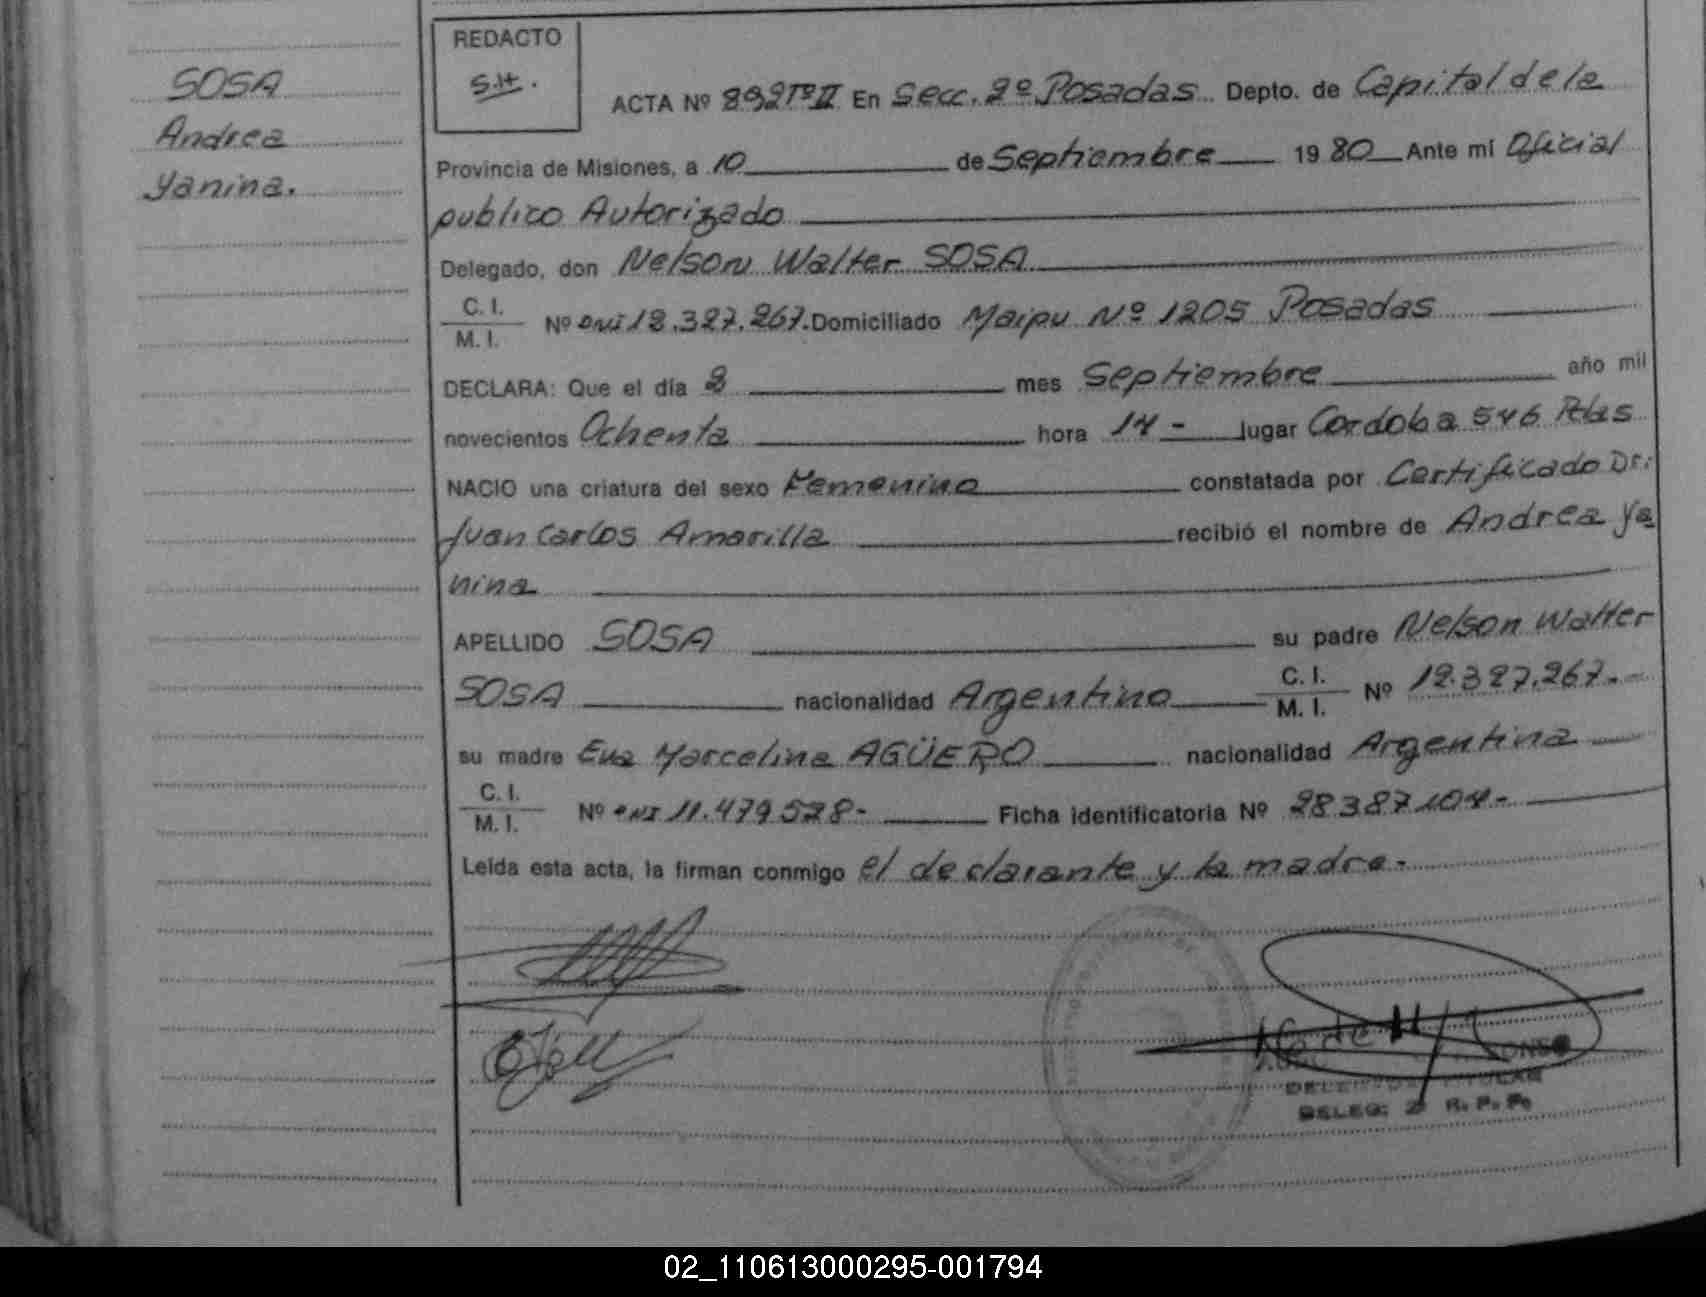 SOSA
Andrea
Yanina.
REDACTO
S.H.
ACTA Nº 892 Tº II En Secc. 2º Posadas Depto. de Capital de la
Provincia de Misiones, a 10 de Septiembre 1980 Ante mi Oficial
publico Autorizado
Delegado, don Nelson Walter SOSA
C. I.
M. I. Nº DNI 12.327.267. Domiciliado Maipu Nº 1205 Posadas
DECLARA: Que el día 8 mes Septiembre año mil
novecientos Ochenta hora 14 - lugar Cordoba 546 Pdas
NACIO una criatura del sexo Femenino constatada por Certificado Dr.
Juan Carlos Amarilla recibió el nombre de Andrea Ya
nina
APELLIDO SOSA su padre Nelson Walter
SOSA nacionalidad Argentino C. I. M. I. Nº 12.327.267.-
su madre Eva Marcelina AGÜERO nacionalidad Argentina
C. I.
M. I. Nº DNI 11.479.528- Ficha identificatoria Nº 28.387.104-
Leída esta acta, la firman conmigo el declarante y la madre.-
TITULAR
DELEG: 2ª R. P. P.
02_110613000295-001794